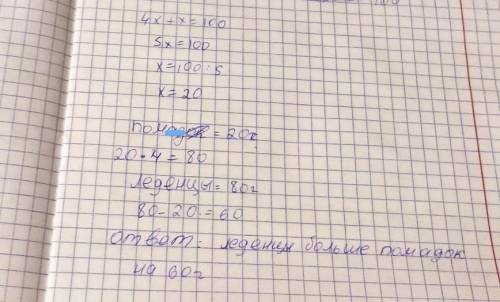 4x+x=100
5x=100
x=100:5
x=20
помадок = 20г
20·4=80
леденцы=80г
80-20=60
ответ: леденцы больше помадок
на 60г